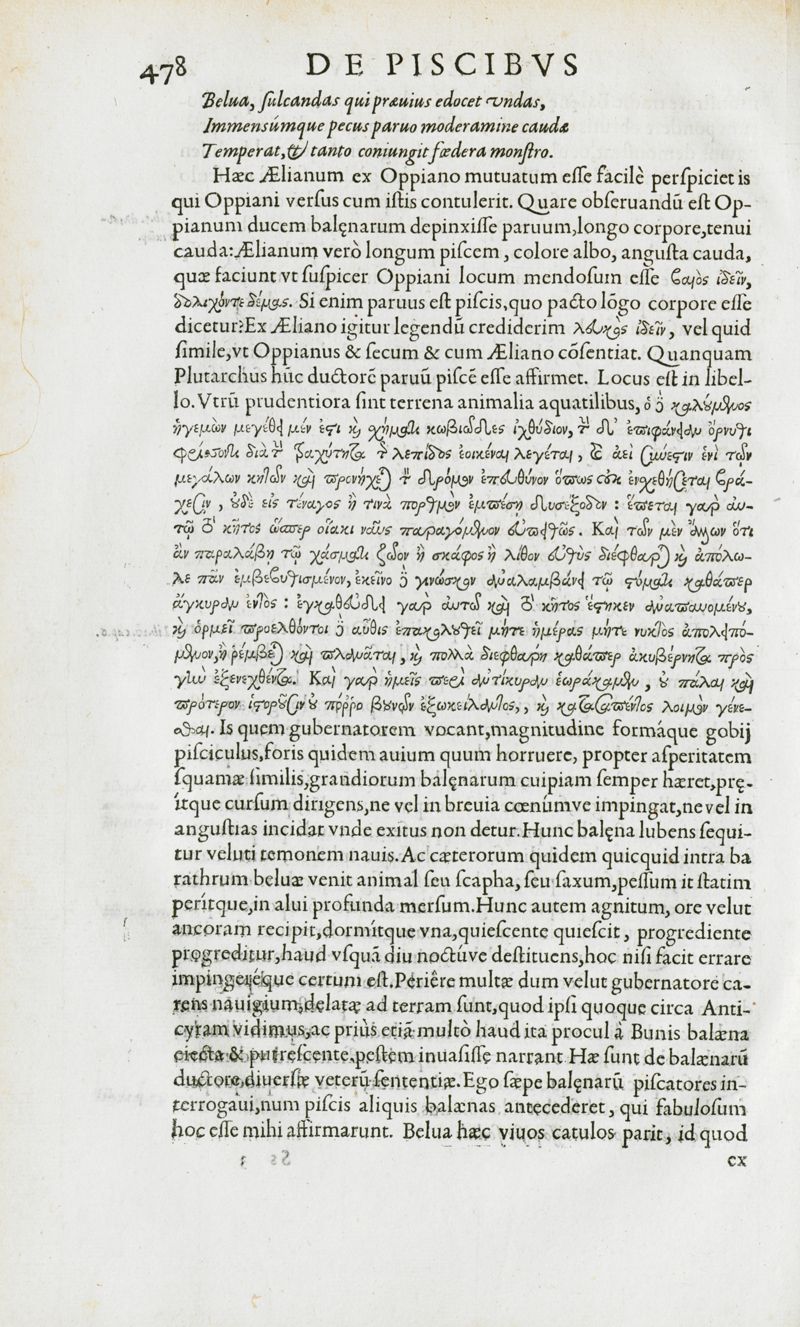 478 DE PISCIBVS
Belua, ſulcandas qui præuius edocet vndas,
Immensúmque pecus paruo moderamine caudæ
Temperat, & tanto coniungit fœdera monſtro.
Hæc Ælianum ex Oppiano mutuatum eſſe facilè perſpiciet is
qui Oppiani verſus cum iſtis contulerit. Quare obſeruandũ eſt Op-
pianum ducem balęnarum depinxiſſe paruum, longo corpore, tenui
cauda: Ælianum verò longum piſcem, colore albo, anguſta cauda,
quæ faciunt vt ſuſpicer Oppiani locum mendoſum eſſe βαιὸς ἰδεῖν,
δολιχόντε δέμας. Si enim paruus eſt piſcis, quo pacto lõgo corpore eſſe
dicetur? Ex Æliano igitur legendũ crediderim λευκὸς ἰδεῖν, vel quid
ſimile, vt Oppianus & ſecum & cum Æliano cõſentiat. Quanquam
Plutarchus hũc ductorẽ paruũ piſcẽ eſſe affirmet. Locus eſt in libel-
lo. Vtrũ prudentiora ſint terrena animalia aquatilibus, ὁ δὲ καλούμενος
ἡγεμὼν μεγέθει μέν ἐστι καὶ σχήματι κωβιῶδες ἰχθύδιον, τὴν δ’ ἐπιφάνειαν ὄρνιθι
φρίσσοντι διὰ τὴν τραχύτητα τῆς λεπίδος ἐοικέναι λέγεται, καὶ ἀεὶ σύνεστιν ἑνὶ τῶν
μεγάλων κητῶν καὶ προνήχεται τὸν δρόμον ἐπευθύνον ὅπως οὐκ ἐνσχεθήσεται βρά-
χεσιν, οὐδὲ εἰς τέναγος ἢ τινὰ πορθμὸν ἐμπέσῃ δυσέξοδον: ἕπεται γὰρ αὐ-
τῷ τὸ κῆτος ὥσπερ οἴακι ναῦς παραγόμενον εὐπειθῶς. Καὶ τῶν μὲν ἄλλων ὅτι
ἂν παραλάβῃ τῷ χάσματι ζῶον ἢ σκάφος ἢ λίθον εὐθὺς διέφθαρται καὶ ἀπόλω-
λε πᾶν ἐμβεβυθισμένον, ἐκεῖνο δὲ γινώσκον ἀναλαμβάνει τῷ στόματι καθάπερ
ἄγκυραν ἐντὸς: ἐγκαθεύδει γὰρ αὐτῷ καὶ τὸ κῆτος ἕστηκεν ἀναπαυομένου,
καὶ ὁρμεῖ προελθόντοι δὲ αὖθις ἐπακολουθεῖ μήτε ἡμέρας μήτε νυκτὸς ἀπολειπό-
μενον, ἢ ῥέμβεται καὶ πλανᾶται, καὶ πολλὰ διεφθάρη καθάπερ ἀκυβέρνητα πρὸς
γῆν ἐξενεχθέντα. Καὶ γὰρ ἡμεῖς περὶ ἀντίκυραν ἑωράκαμεν, οὐ πάλαι καὶ
πρότερον ἱστοροῦσιν οὐ πόρρο βουνῶν ἐξωκείλαντος, καὶ κατασαπέντος λοιμὸν γένε-
σθαι. Is quem gubernatorem vocant, magnitudine formáque gobij
piſciculus, foris quidem auium quum horruere, propter aſperitatem
ſquamæ ſimilis, grandiorum balęnarum cuipiam ſemper hæret, prę-
ítque curſum dirigens, ne vel in breuia cœnúmve impingat, ne vel in
anguſtias incidat vnde exitus non detur. Hunc balęna lubens ſequi-
tur veluti temonem nauis. Ac cæterorum quidem quicquid intra ba
rathrum beluæ venit animal ſeu ſcapha, ſeu ſaxum, peſſum it ſtatim
perítque, in alui profunda merſum. Hunc autem agnitum, ore velut
ancoram recipit, dormítque vna, quieſcente quieſcit, progrediente
progreditur, haud vſquã diu noctúve deſtituens, hoc niſi facit errare
impingeréque certum eſt. Périêre multæ dum velut gubernatore ca-
rens nauigium, delatæ ad terram ſunt, quod ipſi quoque circa Anti-
cyram vidimus, ac priùs etiã multò haud ita procul à Bunis balæna
eiecta & putreſcente, peſtem inuaſiſſe narrant. Hæ ſunt de balænarũ
ductore, diuerſæ veterũ ſententiæ. Ego ſæpe balęnarũ piſcatores in-
terrogaui, num piſcis aliquis balænas antecederet, qui fabuloſum
hoc eſſe mihi affirmarunt. Belua hæc viuos catulos parit, id quod
ex